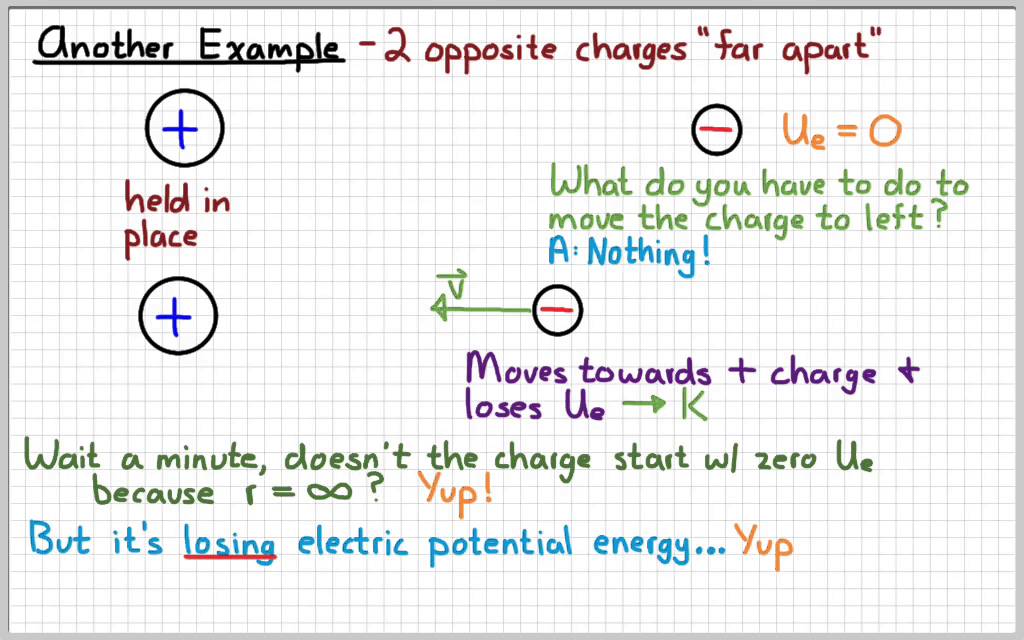 Another Example - 2 opposite charges "far apart"
+
- Ue = 0
held in
place
What do you have to do to
move the charge to left?
A: Nothing!
v
+
-
Moves towards + charge +
loses Ue → K
Wait a minute, doesn't the charge start w/ zero Ue
because r = ∞? Yup!
But it's losing electric potential energy... Yup